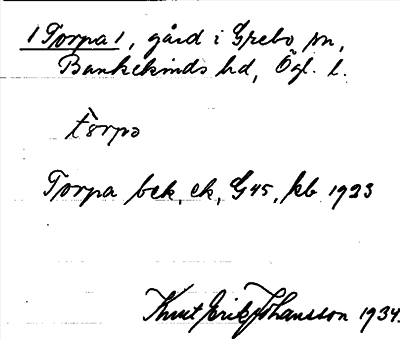 1 Torpa 1, gård i Grebo sn,
Bankekinds hd, Ögl. l.
Torpa bek, ek, G45, kb 1923
Knut Erik Johansson 1934.